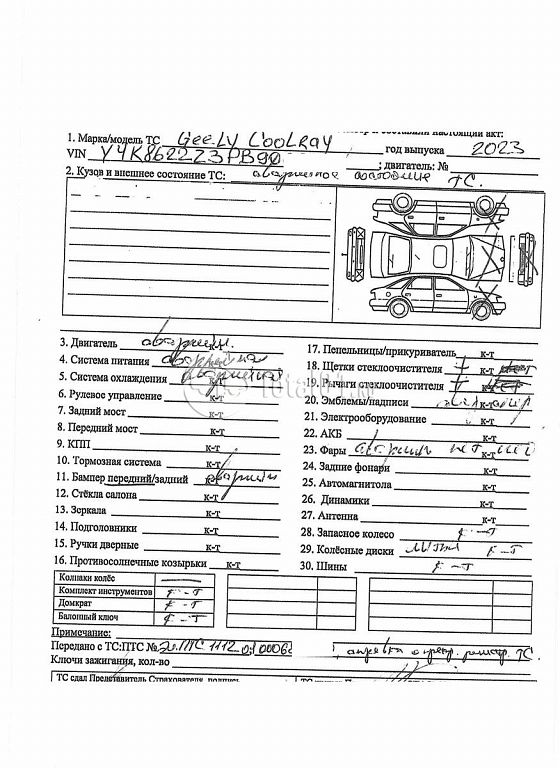 составили настоящий акт:
1. Марка/модель ТС Geely Coolray год выпуска 2023
VIN Y4K8622Z3PB90 ; двигатель: №
2. Кузов и внешнее состояние ТС: аварийное состояние ТС.
3. Двигатель аварийн. к-т
4. Система питания аварийная к-т
5. Система охлаждения аварийная к-т
6. Рулевое управление к-т
7. Задний мост к-т
8. Передний мост к-т
9. КПП к-т
10. Тормозная система к-т
11. Бампер передний/задний аварийн к-т
12. Стёкла салона к-т
13. Зеркала к-т
14. Подголовники к-т
15. Ручки дверные к-т
16. Противосолнечные козырьки к-т
17. Пепельницы/прикуриватель к-т
18. Щетки стеклоочистителя
19. Рычаги стеклоочистителя
20. Эмблемы/надписи
21. Электрооборудование к-т
22. АКБ к-т
23. Фары к-т
24. Задние фонари к-т
25. Автомагнитола к-т
26. Динамики к-т
27. Антенна к-т
28. Запасное колесо к-т
29. Колёсные диски литьё к-т
30. Шины к-т
Колпаки колёс —
Комплект инструментов к-т
Домкрат к-т
Балонный ключ к-т
Примечание:
Передано с ТС:ПТС № Эл.ПТС 1112 01 0006
ТС.
Ключи зажигания, кол-во
ТС сдал Представитель Страхователя, подпись